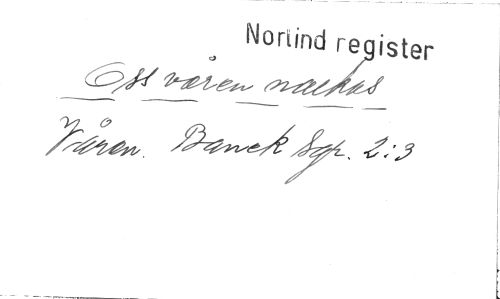 Norlind register
Oss våren nalkas
Våren. Banck Sgr. 2:3